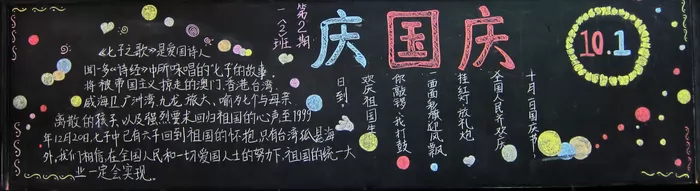 《七子之歌》是爱国诗人
闻一多《诗经》中所咏唱的七子的故事.
将被帝国主义掠走的澳门.香港.台湾.
威海卫.广州湾.九龙.旅大,喻为七个与母亲
离散的孩子,以及强烈要求回归祖国的心声至1999
年12月20日,七子中已有六子回到祖国的怀抱,只有台湾孤悬海
外,我们相信,在全国人民和一切爱国人士的努力下,祖国的统一大
业一定会实现.
第2期
一(3)班
庆国庆
10.1
十月一日国庆节
全国人民齐欢庆
挂红灯 放礼炮
一面面彩旗迎风飘
你敲锣 我打鼓
欢庆祖国生
日到